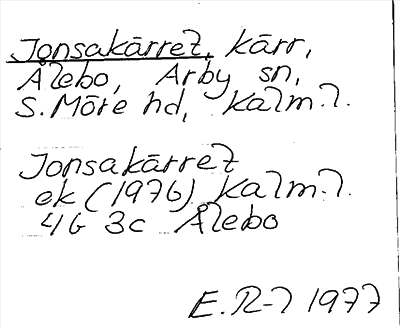 Jonsakärret, kärr,
Ålebo, Arby sn,
S. Möre hd, Kalm. l.
Jonsakärret
ek (1976) Kalm. l.
4G 3c Ålebo
E. R-l 1977